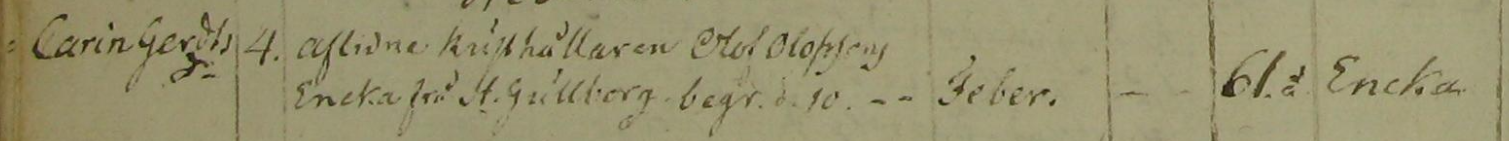 Carin Gerdts 4. aflidne Rusthållaren Olof Olofssons
Dr Encka frå St. Gullborg. begr. d. 10. -- Feber. - - 61. å Encka